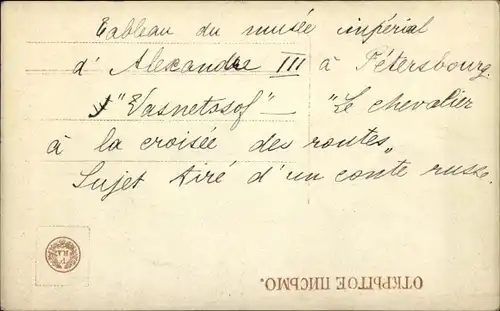 Tableau du musée impérial
d'Alexandre III à Pétersbourg.
"Vasnetssof" — "Le chevalier
à la croisée des routes„
Sujet tiré d'un conte russe.
ОТКРЫТОЕ ПИСЬМО.